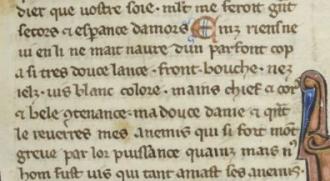 dier que vostre soie · mlt me feroit gnt
secors ⁊ espance damors Ainz riens ne
ui en li ne mait naure dun parfont cop
a si tres douce lance · front · bouche · nez
ielz · uis blanc colore · mains chief ⁊ cors
⁊ bele 9tenance · ma douce dame ⁊ qnt
le reuerres mes anemis qui si fort mōt
greue par lor puissance quainz mais nꝰ
hom fust uis qui tant amast ses anemis ·